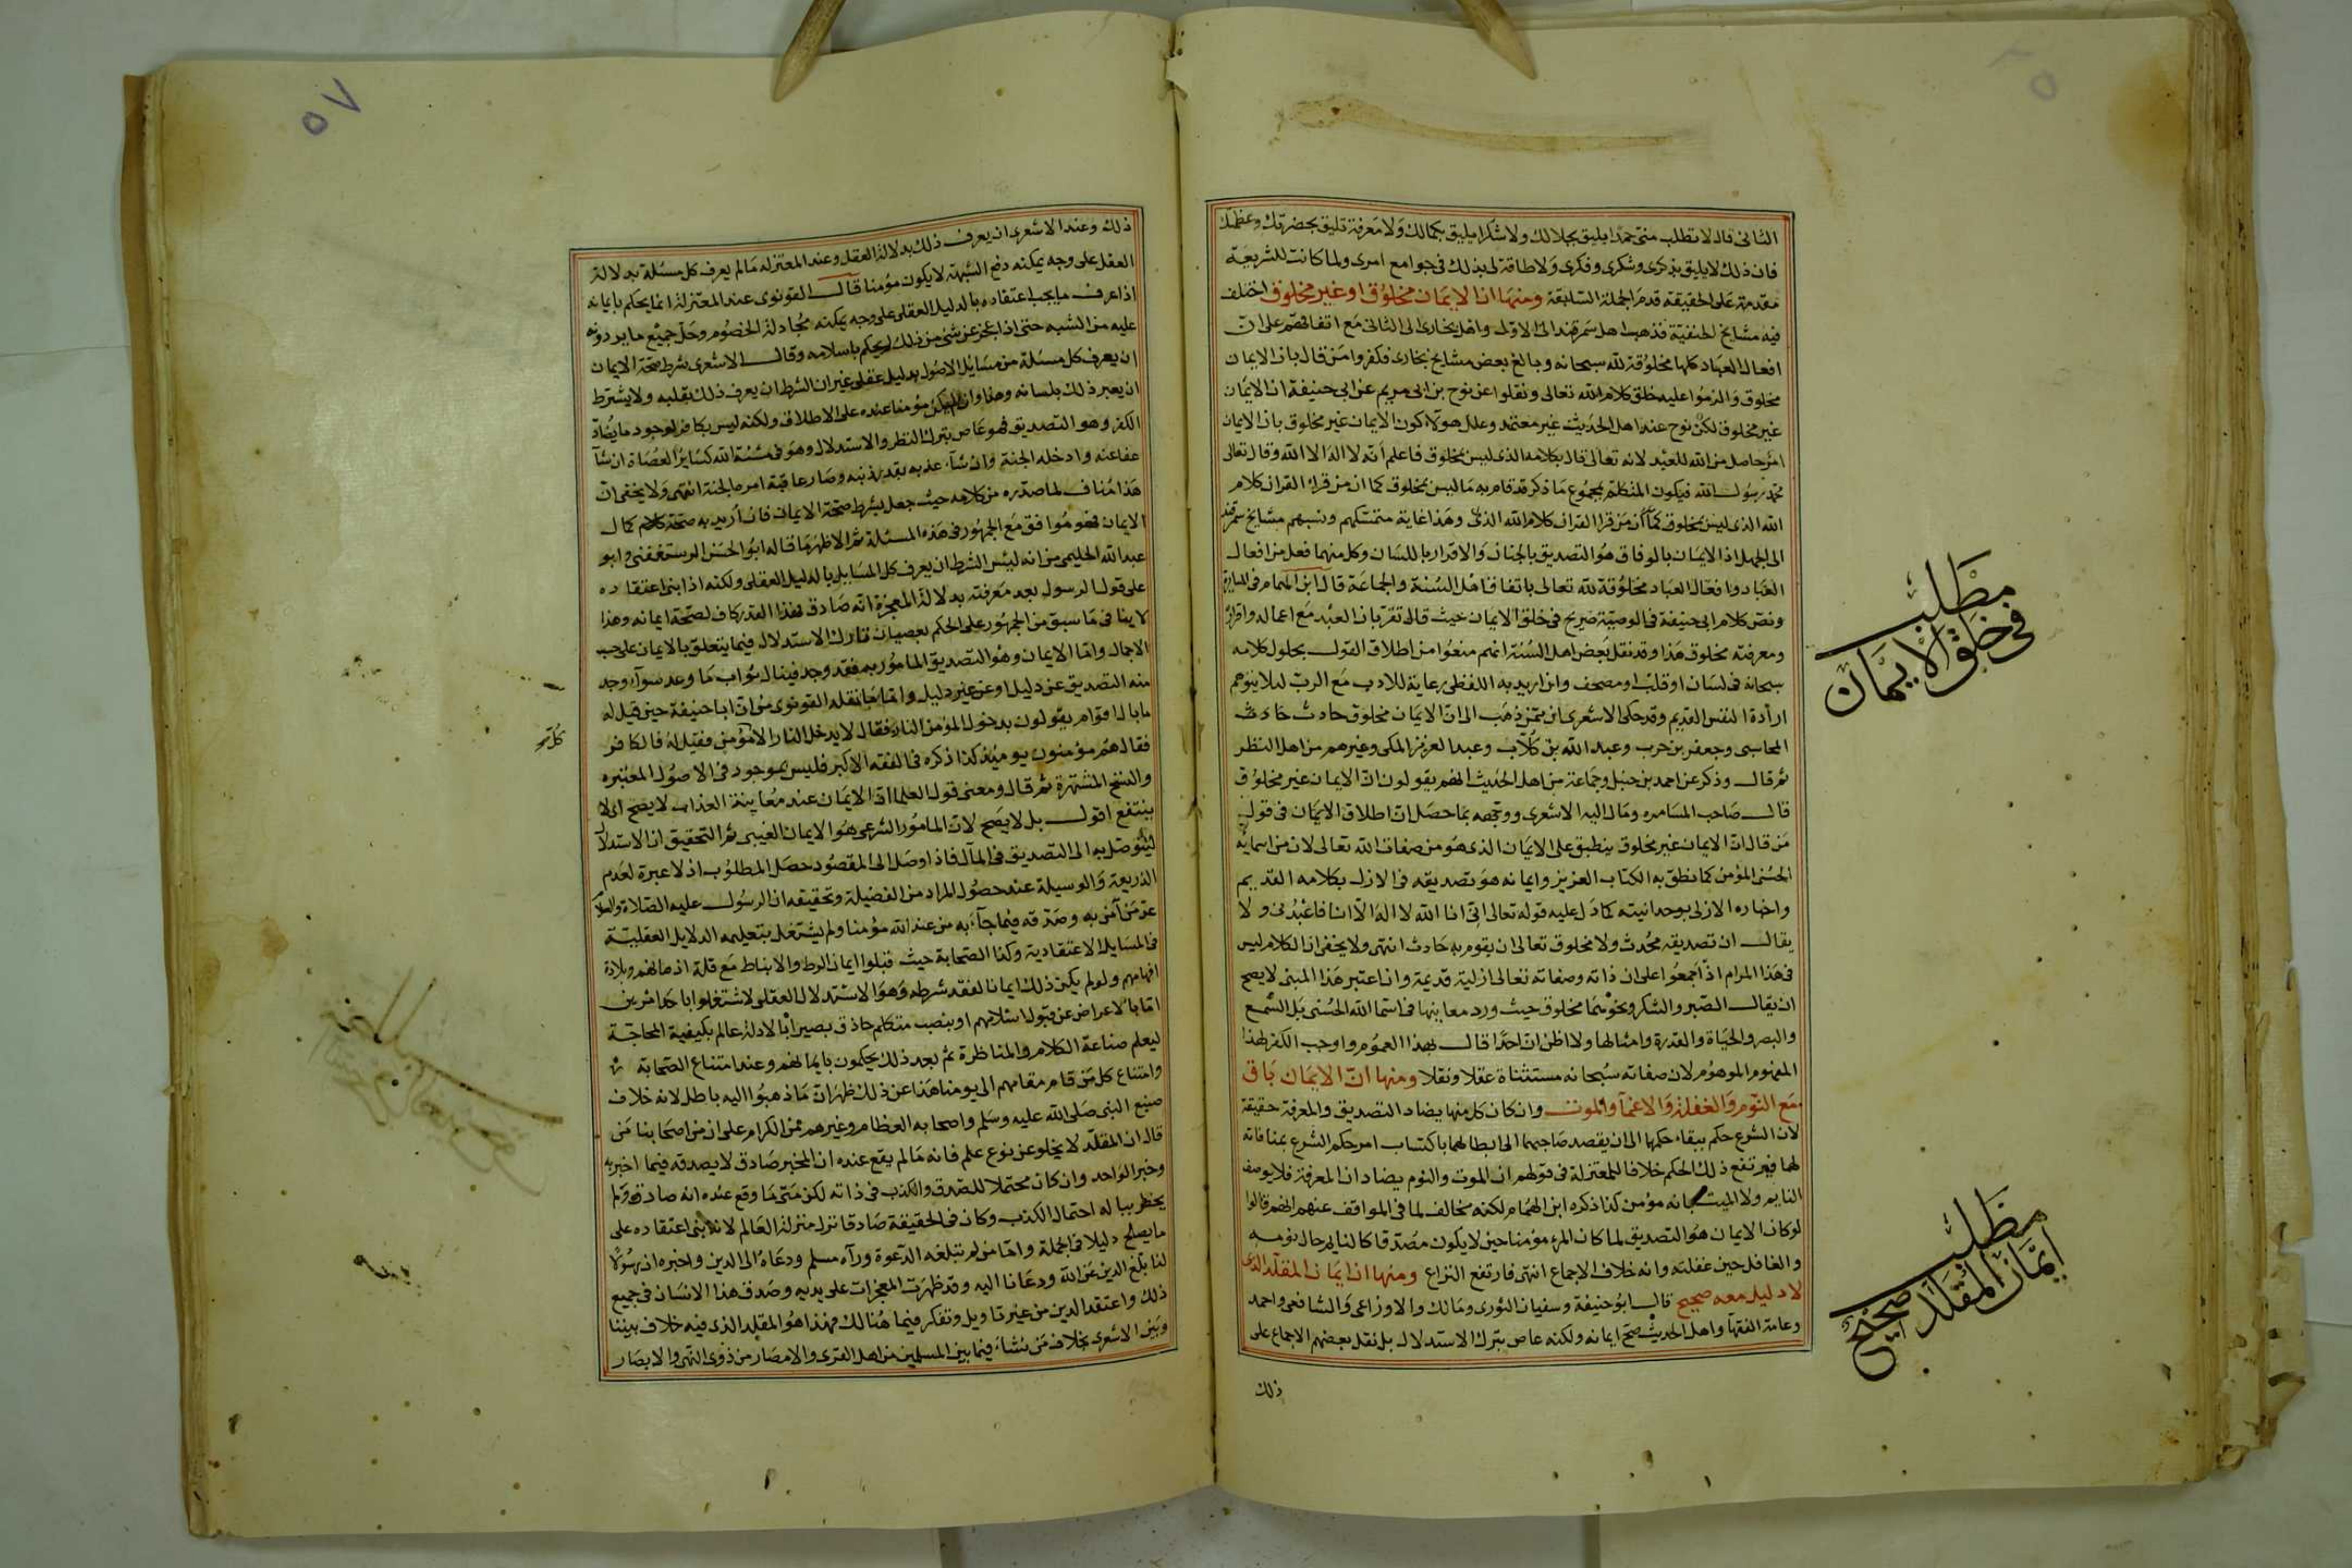 الثانى قال لا تطلب منى حمدا يليق بجلالك ولا شكرا يليق بكمالك ولا معرفة تليق بحضرتك وعظمتك
فان ذلك لا يليق بذكرى وشكرى وفكرى ولا طاقة لى بذلك فى جوامع امرى ولما كانت الشريعة
مقدمة على الحقيقة قدم الجملة السابقة ومنها ان الايمان مخلوق او غير مخلوق اختلف
فيه مشايخ الحنفية فذهب اهل سمرقند الى الاول واهل بخارى الى الثانى مع اتفاقهم على ان
افعال العباد كلها مخلوقة لله سبحانه وبالغ بعض مشايخ بخارى فكفروا من قال بان الايمان
مخلوق والزموا عليه خلق كلام الله تعالى ونقلوا عن نوح بن ابى مريم عن ابى حنيفة ان الايمان
غير مخلوق لكن نوح عند اهل الحديث غير معتمد وعلل هولاء كون الايمان غير مخلوق بان الايمان
امر حاصل من الله للعبد لانه تعالى قال بكلامه الذى ليس بمخلوق فاعلم انه لا اله الا الله وقال تعالى
محمد رسول الله فيكون المتكلم بمجموع ما ذكر قد قام به ما ليس بمخلوق كما ان من قرا القران كلام
الله الذى ليس بمخلوق كما ان من قرا القران كلام الله الذى وهذا غاية متمسكهم ونسبهم مشايخ سمرقند
الى الجهل اذ الايمان بالوفاق هو التصديق بالجنان والاقرار باللسان وكل منهما فعل من افعال
العباد وافعال العباد مخلوقة لله تعالى باتفاق اهل السنة والجماعة قال ابن الهمام فى المسايرة
ونص كلام ابى حنيفة فى الوصية صريح فى خلق الايمان حيث قال نقر بان العبد مع اعماله واقراره
ومعرفته مخلوق هذا وقد نقل بعض اهل السنة انهم منعوا من اطلاق القول بحلول كلامه
سبحانه فى لسان او قلب او مصحف وان اريد به اللفظى رعاية للادب مع الرب لئلا يتوهم
ارادة النفس القديم وقد حكى الاشعرى ان ممن ذهب الى ان الايمان مخلوق حارث
المحاسبى وجعفر بن حرب وعبد الله بن كلاب وعبد العزيز المكى وغيرهم من اهل النظر
ثم قال وذكر عن احمد بن حنبل وجماعة من اهل الحديث انهم يقولون ان الايمان غير مخلوق
قال صاحب المسامره ومال اليه الاشعرى ووجهه بما حصل ان اطلاق الايمان فى قول
من قال ان الايمان غير مخلوق ينطبق على الايمان الذى هو من صفات الله تعالى لان من اسمايه
الحسنى المؤمن كما نطق به الكتاب العزيز وايمانه هو تصديقه فى الازل بكلامه القديم
واخباره الازلى بوحدانيته كما دل عليه قوله تعالى اننى انا الله لا اله الا انا فاعبدنى ولا
يقال ان تصديقه محدث ولا مخلوق تعالى ان يقوم به حادث انتهى ولا يخفى ان الكلام ليس
فى هذا المرام اذ اجمعوا على ان ذاته وصفاته تعالى ازلية قديمة وان اعتبر هذا المبنى لا يصح
ان يقال الصبر والشكر ونحوهما مخلوق حيث ورد معانيها فى اسما الله الحسنى بل السمع
والبصر والحياة والقدرة وامثالها ولا اظن ان احدا قال بهذا العموم واوجب الكفر لهذا
المفهوم الموهوم لان صفاته سبحانه مستثناة عقلا ونقلا ومنها ان الايمان باق
مع النوم والغفلة والاغمآ والموت وان كان كل منها يضاد التصديق والمعرفة حقيقة
لان الشرع حكم ببقاء حكمها الى ان يقصد صاحبها الى ابطالهما باكتساب امر حكم الشرع بمنافاته
لهما فيرتفع ذلك الحكم خلافا للمعتزلة فى قولهم ان الموت والنوم يضادان المعرفة فلا يوصف
النايم ولا الميت بانه مؤمن كذا ذكره ابن الهمام لكنه مخالف لما فى المواقف عنهم انهم قالوا
لو كان الايمان هو التصديق لما كان المرء مؤمنا حين لا يكون مصدقا كالنايم حال نومه
والغافل حين غفلته وانه خلاف الاجماع انتهى فارتفع النزاع ومنها ان ايمان المقلد الذى
لا دليل معه صحيح قال ابو حنيفة وسفيان الثورى ومالك والاوزاعى والشافعى واحمد
وعامة الفقها واهل الحديث صح ايمانه ولكنه عاص بترك الاستدلال بل نقل بعضهم الاجماع على
ذلك
مطلب
فى خلق الايمان
مطلب
ايمان المقلد صحيح
٥٧
ذلك وعند الاشعرى ان يعرف ذلك بدلالة العقل وعند المعتزله ما لم يعرف كل مسئلة بدلالة
العقل على وجه يمكنه دفع الشبهة لا يكون مؤمنا قال القونوى عند المعتزلة انما يحكم بايمانه
اذا عرف ما يجب اعتقاده بالدليل العقلى على وجه يمكنه مجادلة الخصوم وحل جميع ما يردونه
عليه من الشبه حتى اذا عجز عن شئ من ذلك لم يحكم باسلامه وقال الاشعرى شرط صحة الايمان
ان يعرف كل مسئلة من مسايل الاصول بدليل عقلى غير ان الشرط ان يعرف ذلك بقلبه ولا يشترط
ان يعبر ذلك بلسانه وهذا وان لم يكن مؤمنا عنده على الاطلاق ولكنه ليس بكافر لوجود ما يضاد
الكفر وهو التصديق فهو عاص بترك النظر والاستدلال وهو فى مشئة الله كساير العصاة ان شآ
عفا عنه وادخله الجنة وان شآء عذبه بقدر ذنبه وصار عاقبة امره الجنة انتهى ولا يخفى ان
هذا مناف لما صدره من كلامه حيث جعل شرط صحة الايمان فان اريد به صحة كمال
الايمان فهو موافق مع الجمهور فى هذه المسئلة ثم الاظهر ما قاله ابو الحسن الرستغفنى وابو
عبد الله الحليمى من انه ليس الشرط ان يعرف كل المسايل بالدليل العقلى ولكنه اذا بنى اعتقاده
على قول الرسول بعد معرفته بدلالة المعجزة انه صادق فهذا القدر كاف لصحة ايمانه وهذا
لا ينافى ما سبق من الجمهور على الحكم بعصيان تارك الاستدلال فيما يتعلق بالايمان على حسب
الاجمال واما الايمان وهو التصديق المامور به فقد وجد فينال ثواب ما وعد سوآء وجد
منه التصديق عن دليل او عن غير دليل واما ما نقله القونوى من ان ابا حنيفة حين قيل له
ما بال اقوام يقولون بدخول المؤمن النار فقال لا يدخل النار الا مؤمن فقيل له فالكافر
فقال هم مؤمنون يوميئذ كذا ذكره فى الفقه الاكبر فليس بموجود فى الاصول المعتبره
والنسخ المشتهرة ثم قال ومعنى قول العلما ان الايمان عند معاينة العذاب لا يصح اى لا
ينتفع اقول بل لا يصح لان المامور الشرعى هو الايمان الغيبى ثم التحقيق ان الاستدلال
ليتوصل به الى التصديق فى المآل فاذا وصل الى المقصود حصل المطلوب اذ لا عبرة لعدم
الذريعة والوسيلة عند حصول المراد من الفضيلة وتحقيقه ان الرسول عليه الصلاة والسلام
عد من آمن به وصدقه فيما جآء به من عند الله مؤمنا ولم يشتغل بتعليمه الدلايل العقلية
فى المسايل الاعتقادية وكذا الصحابة حيث قبلوا ايمان الزط والانباط مع قلة اذهانهم وبلادة
افهامهم ولو لم يكن ذلك ايمانا لفقد شرطه وهو الاستدلال العقلى لاشتغلوا باحد امرين
اما بالاعراض عن قبول اسلامهم او بنصب متكلم حاذق بصير بالادلة عالم بكيفية المحاجة
ليعلم صناعة الكلام والمناظرة ثم بعد ذلك يحكمون بايمانهم وعند امتناع الصحابة
وامتناع كل من قام مقامهم الى يومنا هذا عن ذلك ظهر ان ما ذهبوا اليه باطل لانه خلاف
صنيع النبى صلى الله عليه وسلم واصحابه العظام وغيرهم من الكرام على ان من اصحابنا من
قال ان المقلد لا يخلو عن نوع علم فانه ما لم يقع عنده ان المخبر صادق لا يصدقه فيما اخبر به
وخبر الواحد وان كان محتملا للصدق والكذب فى ذاته لكن متى ما وقع عنده انه صادق ولم
يخطر بباله احتمال الكذب وكان فى الحقيقة صادقا نزل منزلة العالم لانه بنى اعتقاده على
ما يصلح دليلا فى الجملة واما من لم تبلغه الدعوة ورآه مسلم ودعاه الى الدين واخبره ان رسولا
لنا بلغ الدين عن الله ودعانا اليه وقد ظهرت المعجزات على يديه وصدق هذا الانسان فى جميع
ذلك واعتقد الدين من غير تاويل وتفكر فيما هنالك فهذا هو المقلد الذى فيه خلاف بيننا
وبين الاشعرى بخلاف من نشاء فيما بين المسلمين من اهل القرى والامصار من ذوى النهى والابصار